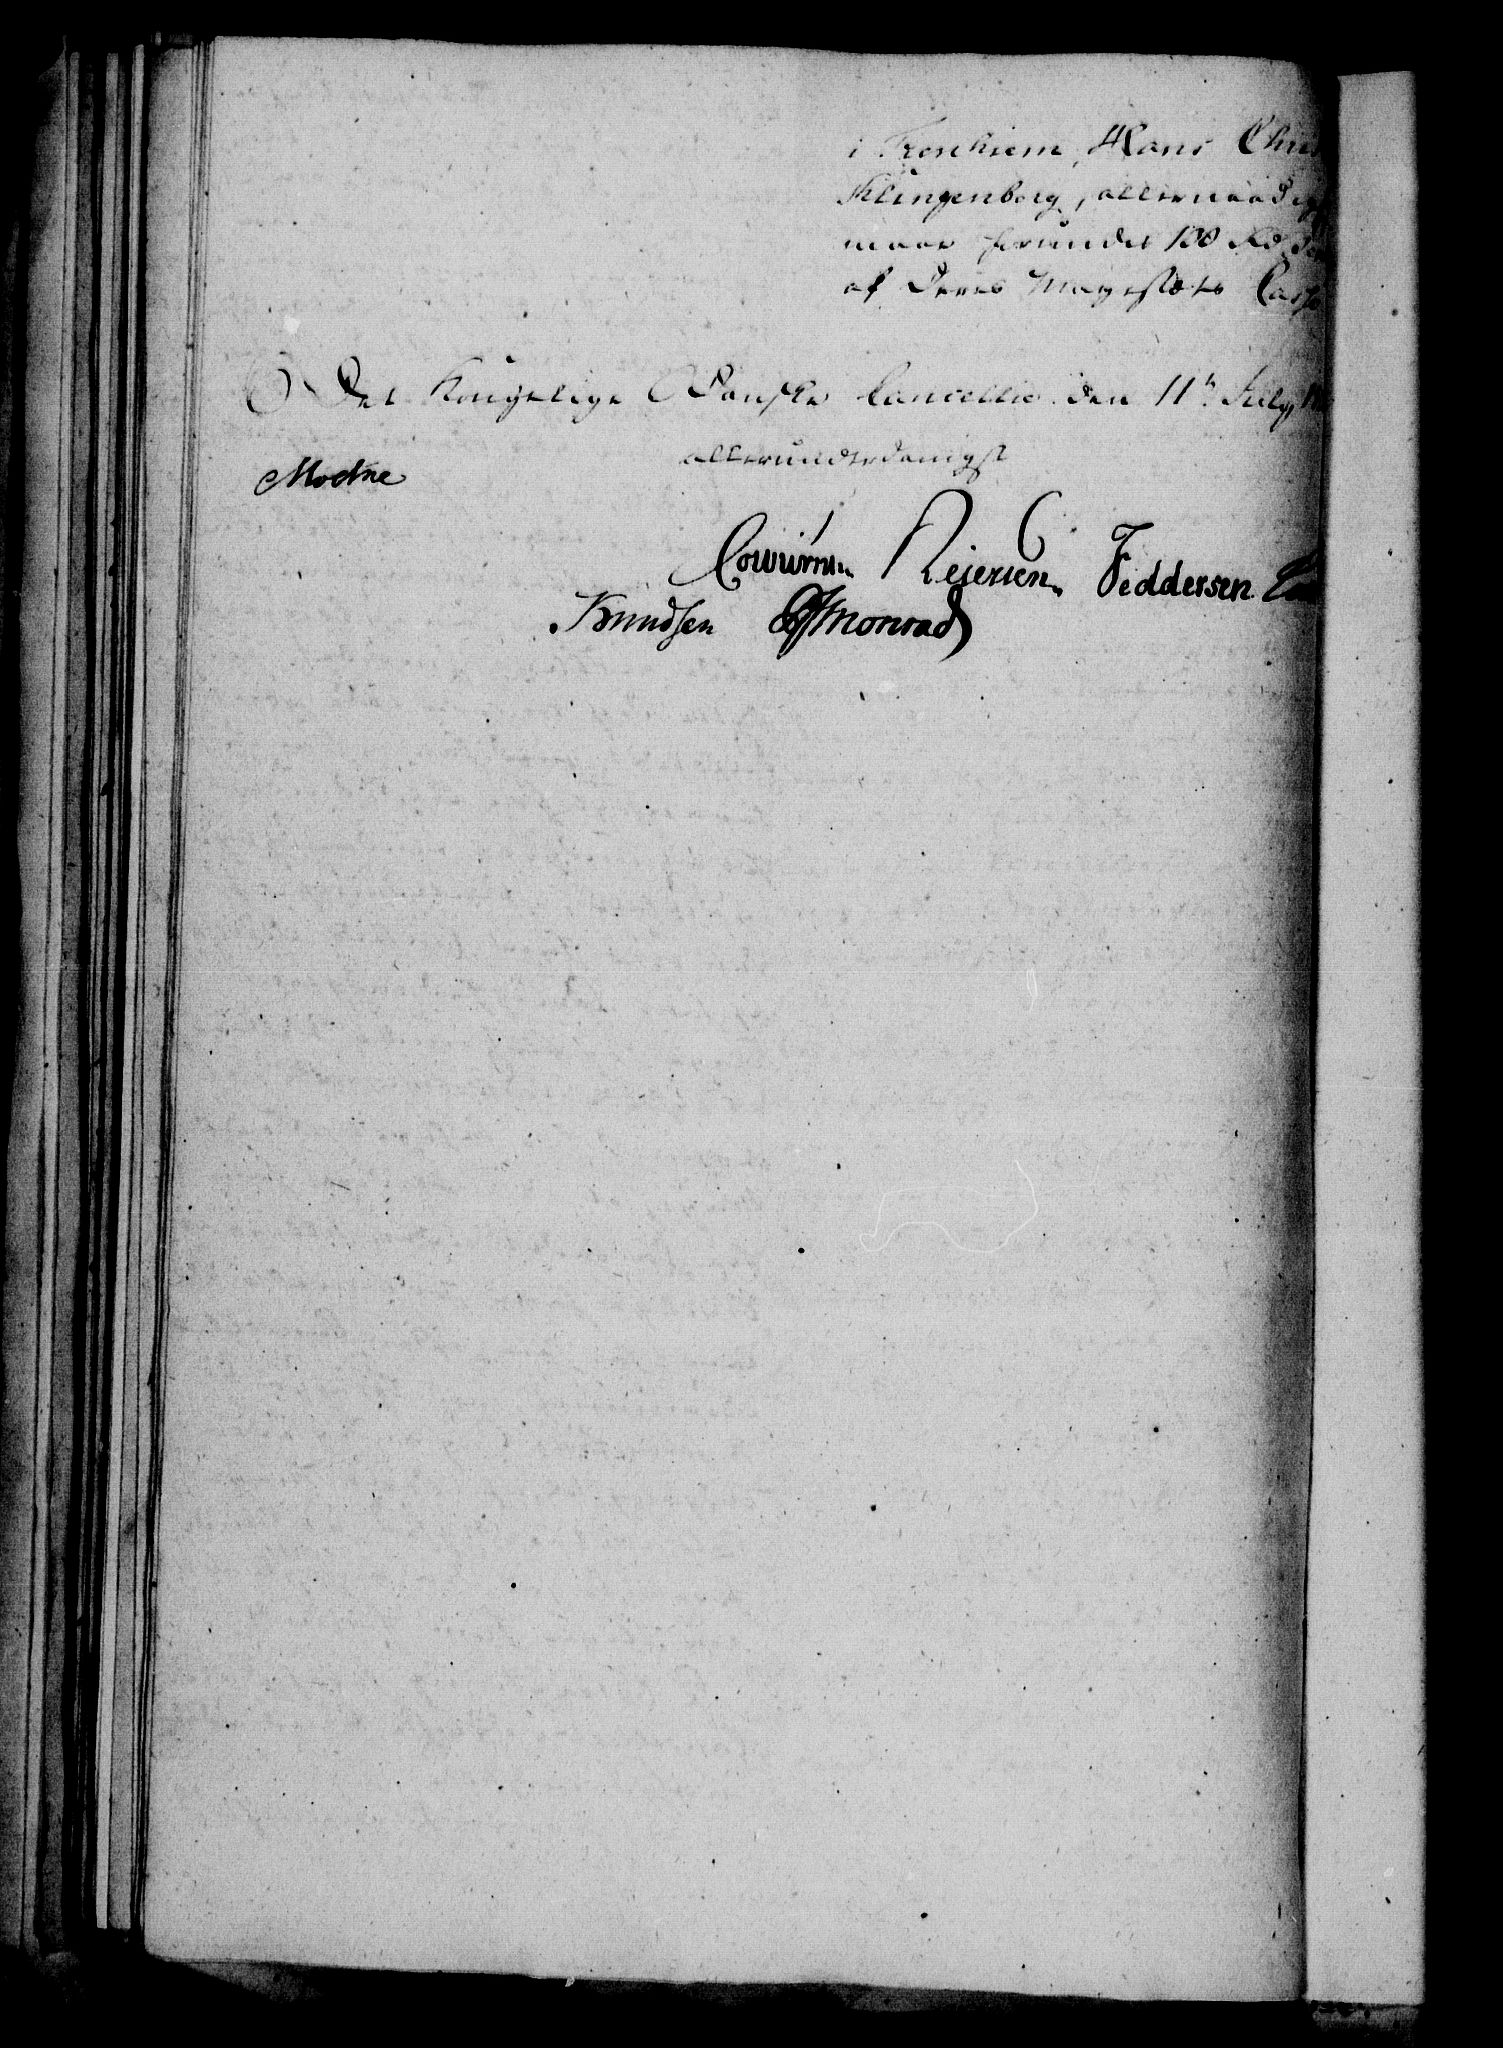 i Tronhiem, Hans Chri
Klingenberg, allernaadigst
maae forundes 100 Rd
af Deres Majestæts Casse
Det Kongelige Danske Cancellie den 11te July
allerunderdanigst
Moelne
Cowürm Reiersen. Feddersen.
Knudsen Monrad